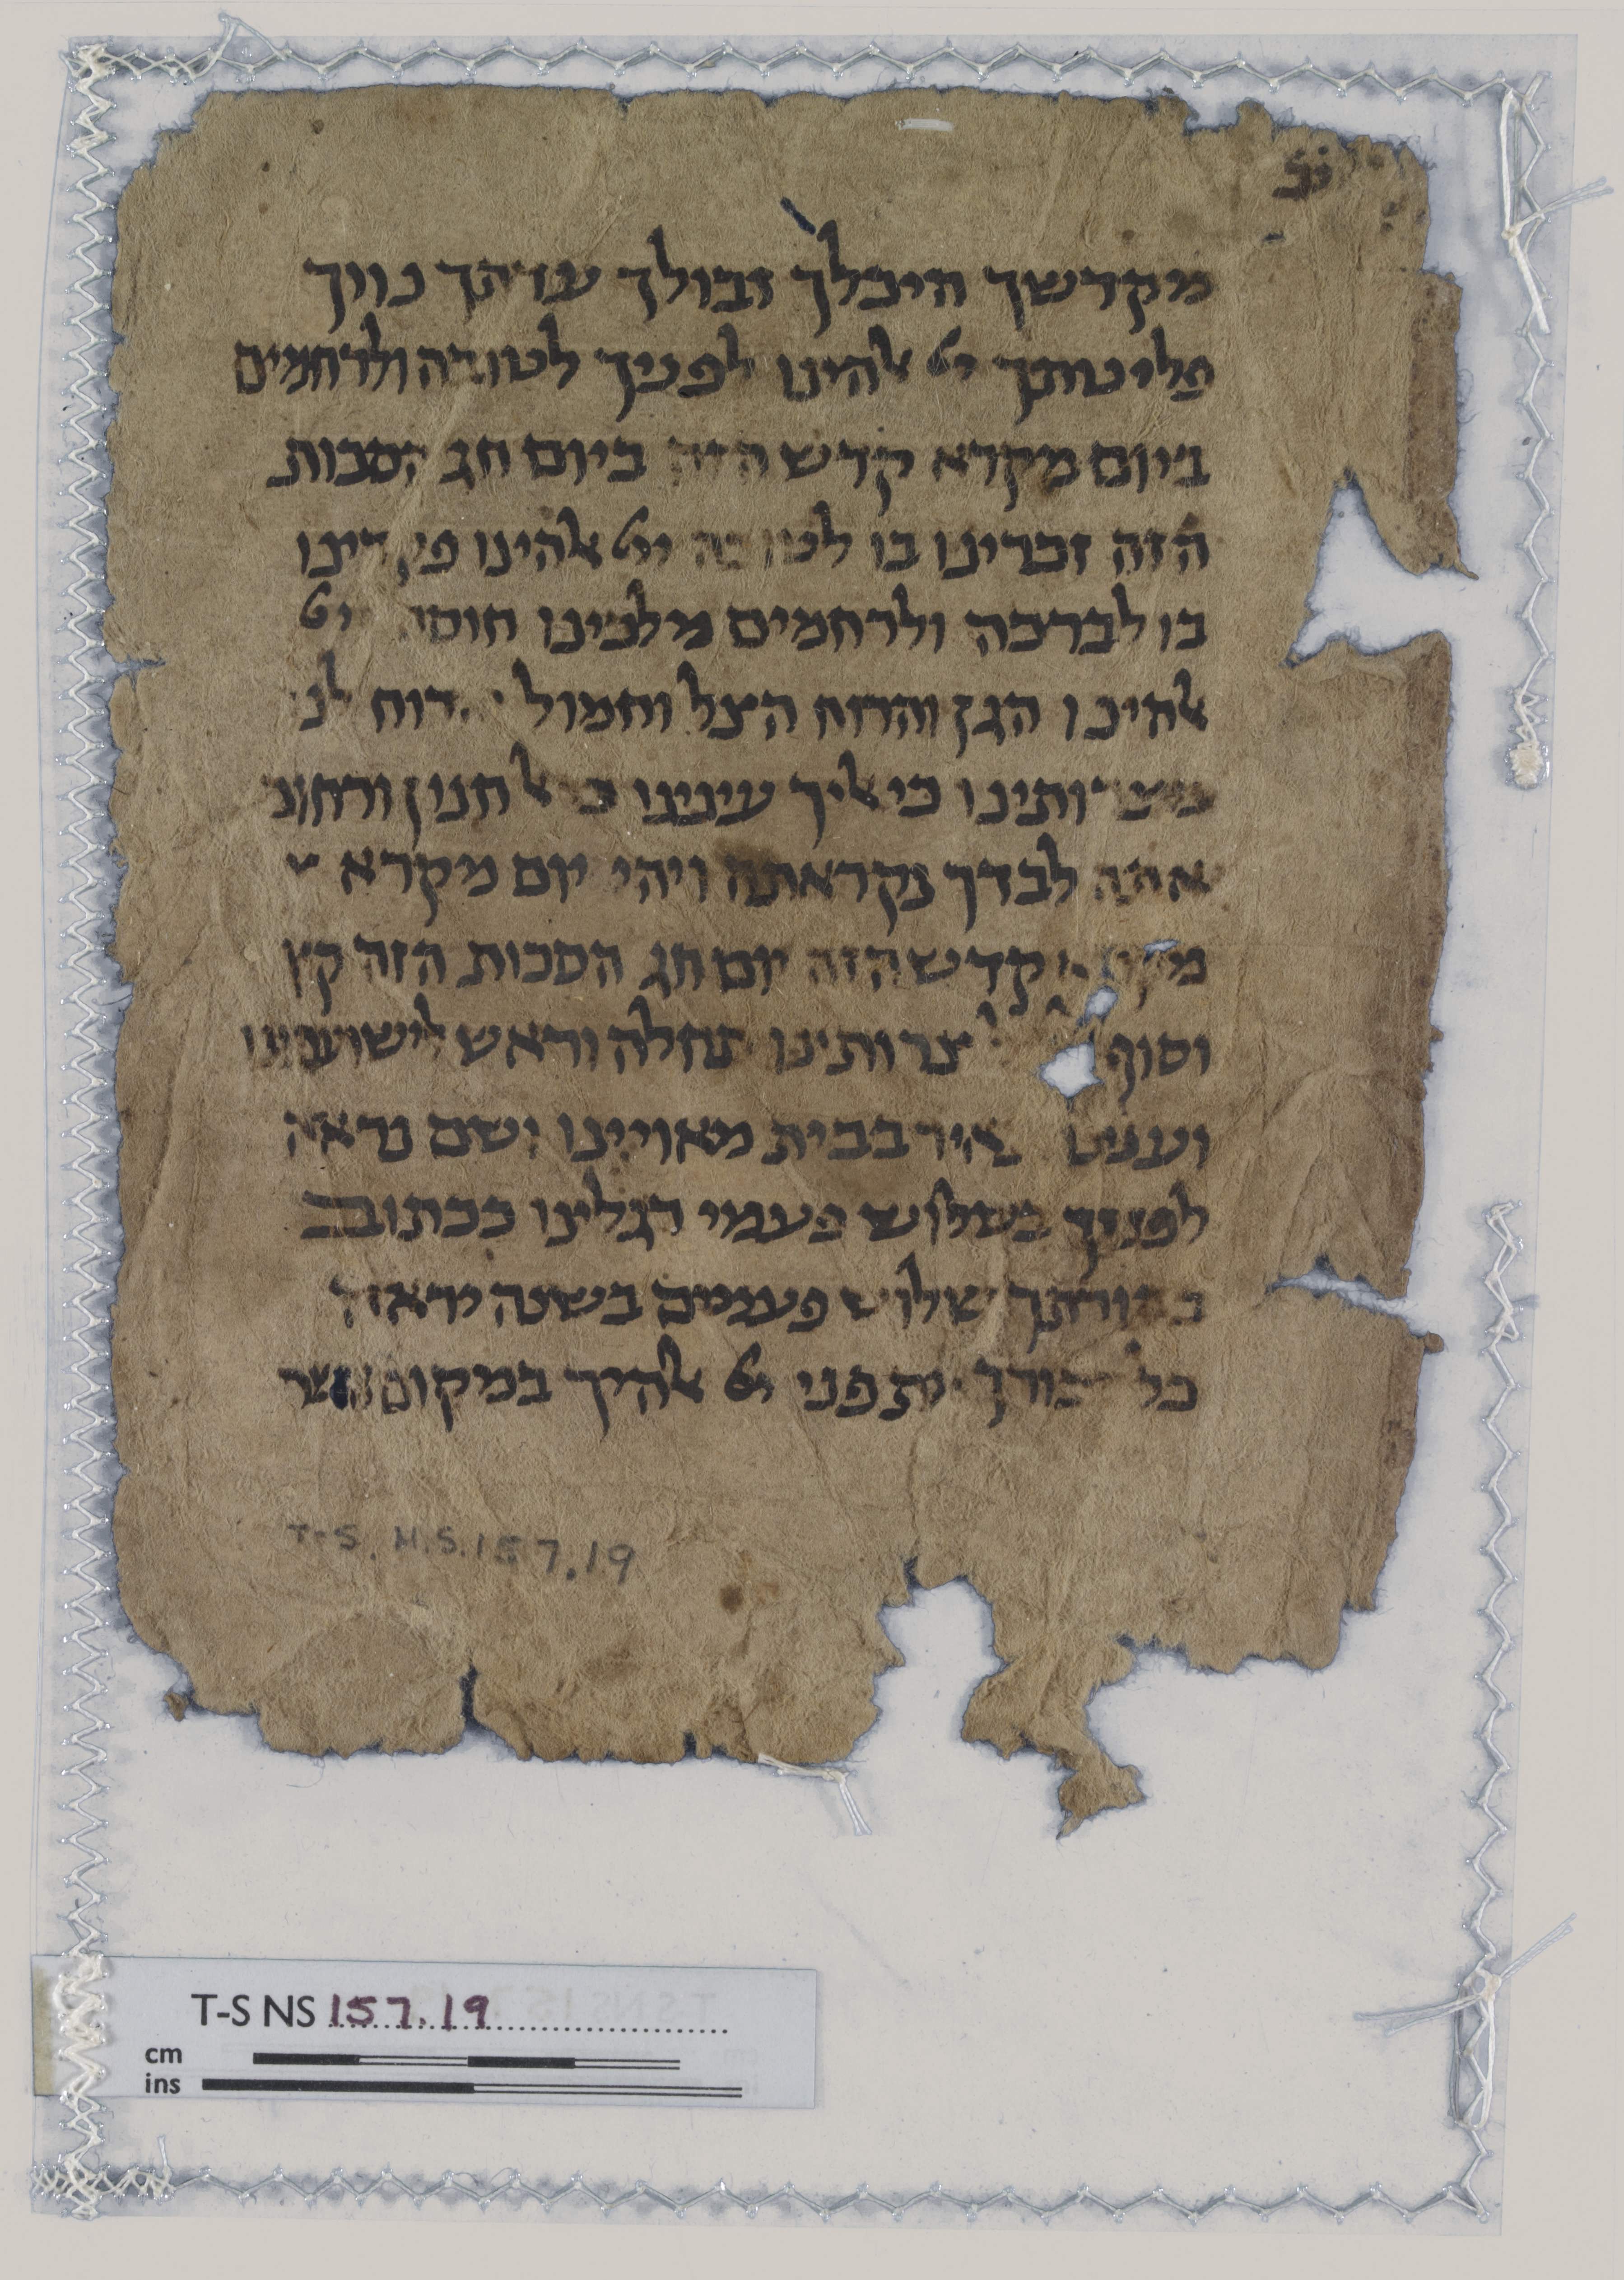 יב
מקדשך היכלך זבולך עדתך נוויך
פליטתך יי אלהינו לפניך לטובה ולרחמים
ביום מקרא קדש הזה ביום חג הסכות
הזה זכרינו בו לטובה ייי אלהינו פקדינו
בו לברכה ולרחמים מלכינו חוסה ייי
אלהינו הגן והרוח הצל וחמול הרוח לנו
מצרותינו כי אליך עינינו כי אל חנון ורחום
אתה לבדך נקראתה ויהי יום מקרא
מקרא קדש הזה יום חג הסכות הזה קץ
וסוף צרותינו תחלה וראש לישועתינו
ועננו בבית מאויינו ושם נראה
לפניך בשלוש פעמי רגלינו ככתוב
בתורתך שלוש פעמים בשנה יראה
כל זכורך את פני יי אלהיך במקום אשר
T-S. N.S. 157.19
T-S NS 157.19
cm
ins